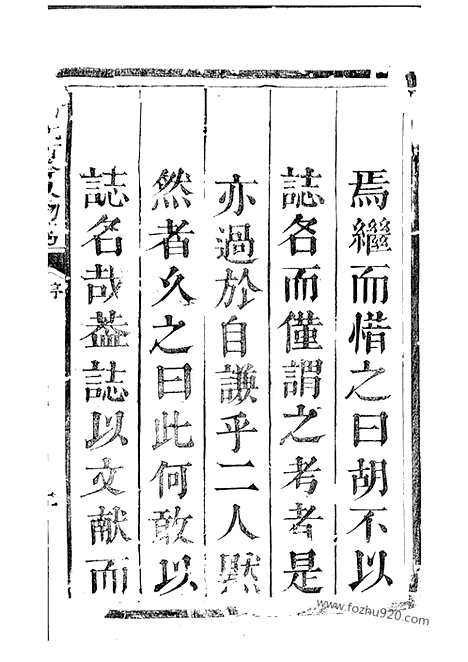 焉繼而惜之曰胡不以
誌名而僅謂之考者是
亦過於自謙乎二人黙
然者久之曰此何敢以
誌名哉葢誌以文献而
序
www.fozhu920.com